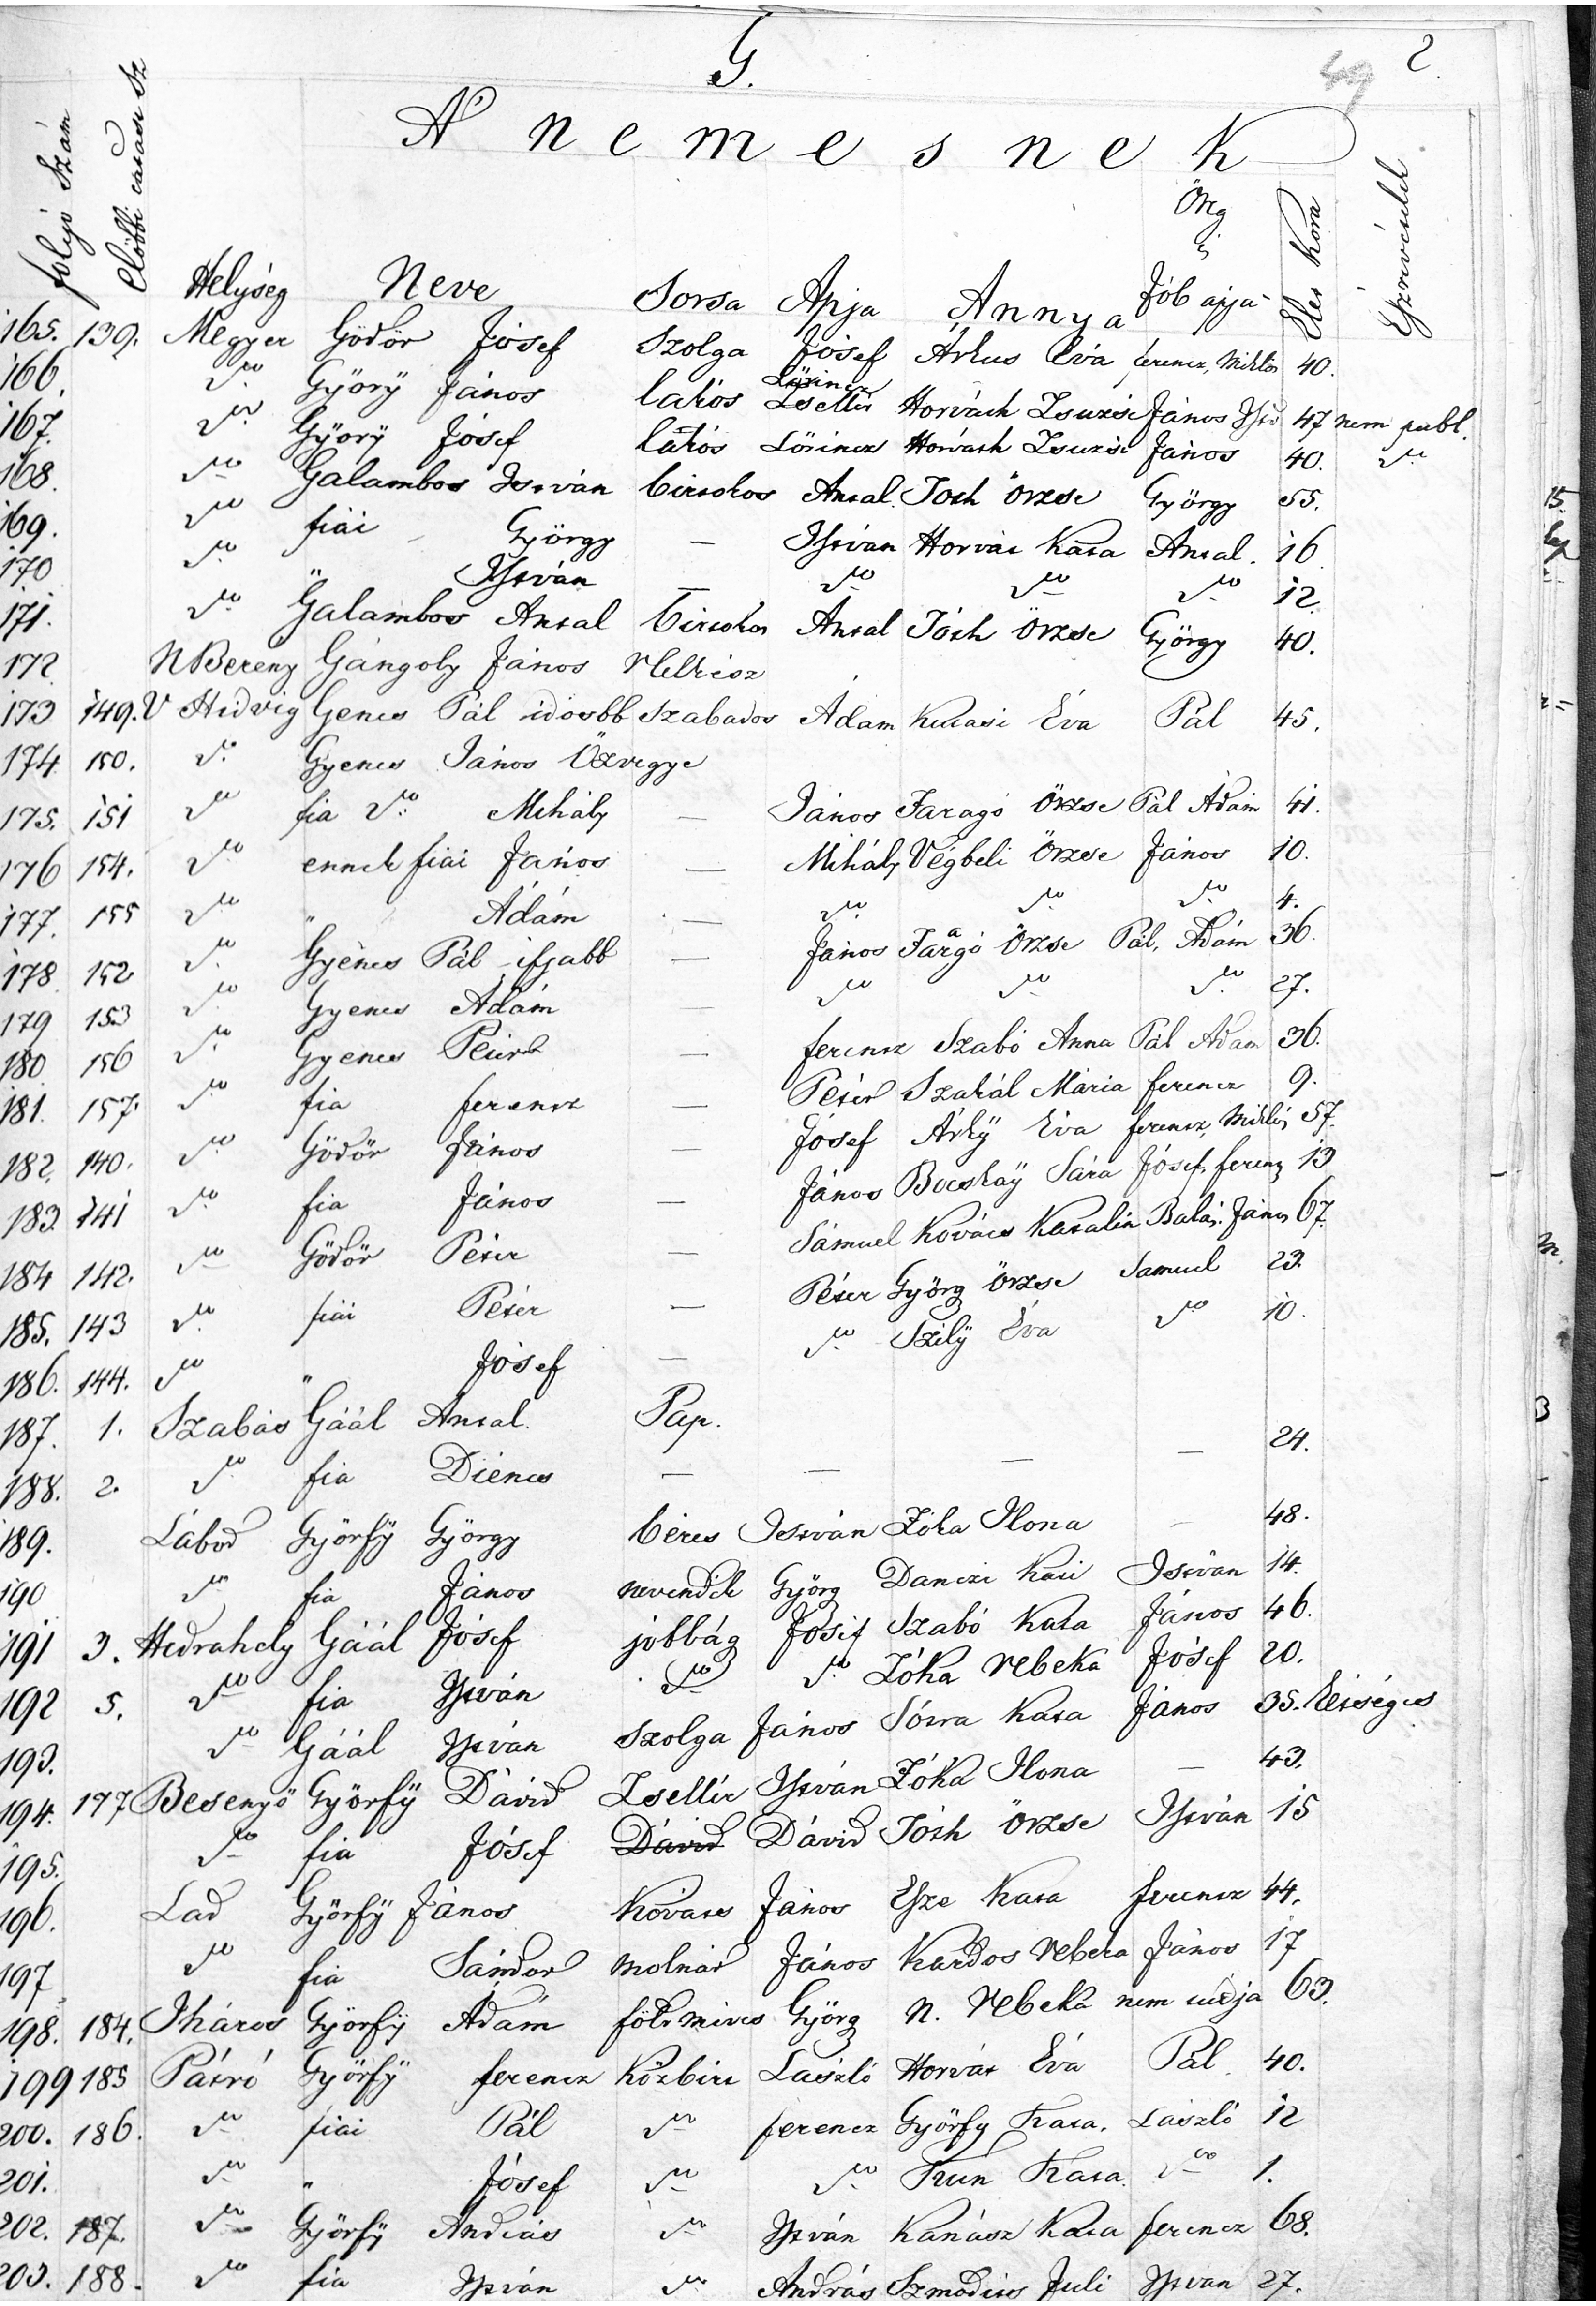 G.
49 2.
A nemesnek
folyó Szám Előbbi Helység Neve Sorsa Apja Annya Örg Jób apja Élet kora Észrevételek
165. 139. Megyer Gödör Jósef Szolga Jósef Árkus Éva ferencz, Miklós 40.
166. do Györÿ János lakós Lörincz Zsellér Horváth Zsuzsi János 47 nem publ.
167. do Györÿ Jósef lakós Lörincz Horváth Zsuzsi János 40. do
168. do Galambos István birtokos Antal Tóth Örzse György 55.
169. do fiai György — István Horvát Kata Antal. 16
170 do " István — do do do 12.
171. do Galambos Antal birtokos Antal Tóth Örzse György 40.
172 NBereny Gángoly János
173 149. V Hidvig Gencs Pál idősbb Szabados Ádam Kutasi Éva Pál 45.
174 150. do Gyenes János Özvegye
175. 151 do fia do Mihály — János Faragó Örzse Pál Ádám 41.
176 154. do ennek fiai János — Mihály Végbeli Örzse János 10.
177. 155 do " Ádám — do do do 4.
178 152 do Gyenes Pál ifjabb — János Faragó Örzse Pál, Ádám 36.
179 153 do Gyenes Ádám — do do do 27.
180 156 do Gyenes Péter — ferencz Szabó Anna Pál Ádam 36.
181. 157. do fia ferencz — Péter Szakál Mária ferencz 9.
182. 140. do Gödör János — Jósef Árkÿ Éva ferencz, Miklós 57.
183. 141 do fia János — János Bocskaÿ Sára Jósef, ferencz 13
184 142. do Gödör Péter — Sámuel Kovács Katalin Balás. János 67.
185. 143 do fiai Péter — Péter Györg Örzse Samuel 23.
186. 144. do " Jósef — do Szilÿ Éva do 10.
187. 1. Szabás Gáál Antal. Pap.
188. 2. do fia Diénes — — — — 24.
189. Lábod Györfÿ György béres István Zóka Ilona — 48.
190 do fia János nevendék Györg Danczi Kati István 14.
191 3. Hedrahely Gáál Jósef jobbág Jósef Szabó Kata János 46.
192 5. do fia István do do Zóka Rebeka Jósef 20.
193. do Gáál István Szolga János Sótra Kata János 35. kétséges
194. 177 Besenyö Györfÿ Dávid Zsellér István Zóka Ilona — 43.
195. do fia Jósef Dávid Dávid Tóth Örzse István 15
196. Lad Györfÿ János Kováts János Esze Kata ferencz 44.
197 do fia Sándor molnár János Kardos Rebeka János 17
198. 184. Iháros Györfÿ Ádám földmives Györg N. Rebeka nem tudja 63.
199 185 Pátró Györfÿ ferencz Közbirt László Horvát Éva Pál 40.
200. 186. do fiai Pál do ferencz Györfy Kata. László 12
201. do " Jósef do do Kún Kata. do 1.
202. 187. do Györfÿ András do István Kanász Kata ferencz 68.
203. 188. do fia István do András Szmodics Juli István 27.